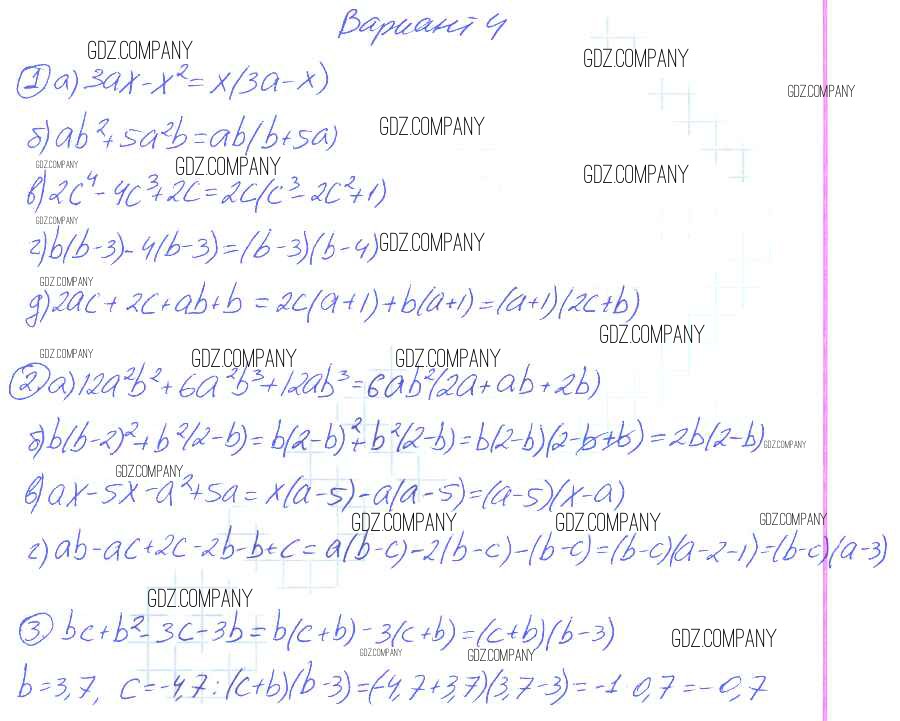 Вариант 4
GDZ.COMPANY GDZ.COMPANY
1 а) 3ax - x² = x(3a - x)
GDZ.COMPANY
б) ab² + 5a²b = ab(b + 5a) GDZ.COMPANY
GDZ.COMPANY GDZ.COMPANY GDZ.COMPANY
в) 2c⁴ - 4c³ + 2c = 2c(c³ - 2c² + 1)
GDZ.COMPANY
г) b(b - 3) - 4(b - 3) = (b - 3)(b - 4) GDZ.COMPANY
GDZ.COMPANY
д) 2ac + 2c + ab + b = 2c(a + 1) + b(a + 1) = (a + 1)(2c + b)
GDZ.COMPANY
GDZ.COMPANY GDZ.COMPANY GDZ.COMPANY
2 а) 12a²b² + 6a²b³ + 12ab³ = 6ab²(2a + ab + 2b)
б) b(b - 2)² + b²(2 - b) = b(2 - b)² + b²(2 - b) = b(2 - b)(2 - b + b) = 2b(2 - b) GDZ.COMPANY
GDZ.COMPANY
в) ax - 5x - a² + 5a = x(a - 5) - a(a - 5) = (a - 5)(x - a)
GDZ.COMPANY GDZ.COMPANY GDZ.COMPANY
г) ab - ac + 2c - 2b - b + c = a(b - c) - 2(b - c) - (b - c) = (b - c)(a - 2 - 1) = (b - c)(a - 3)
GDZ.COMPANY
3 bc + b² - 3c - 3b = b(c + b) - 3(c + b) = (c + b)(b - 3)
GDZ.COMPANY GDZ.COMPANY GDZ.COMPANY
b = 3,7, c = -4,7 : (c + b)(b - 3) = (-4,7 + 3,7)(3,7 - 3) = -1 · 0,7 = -0,7